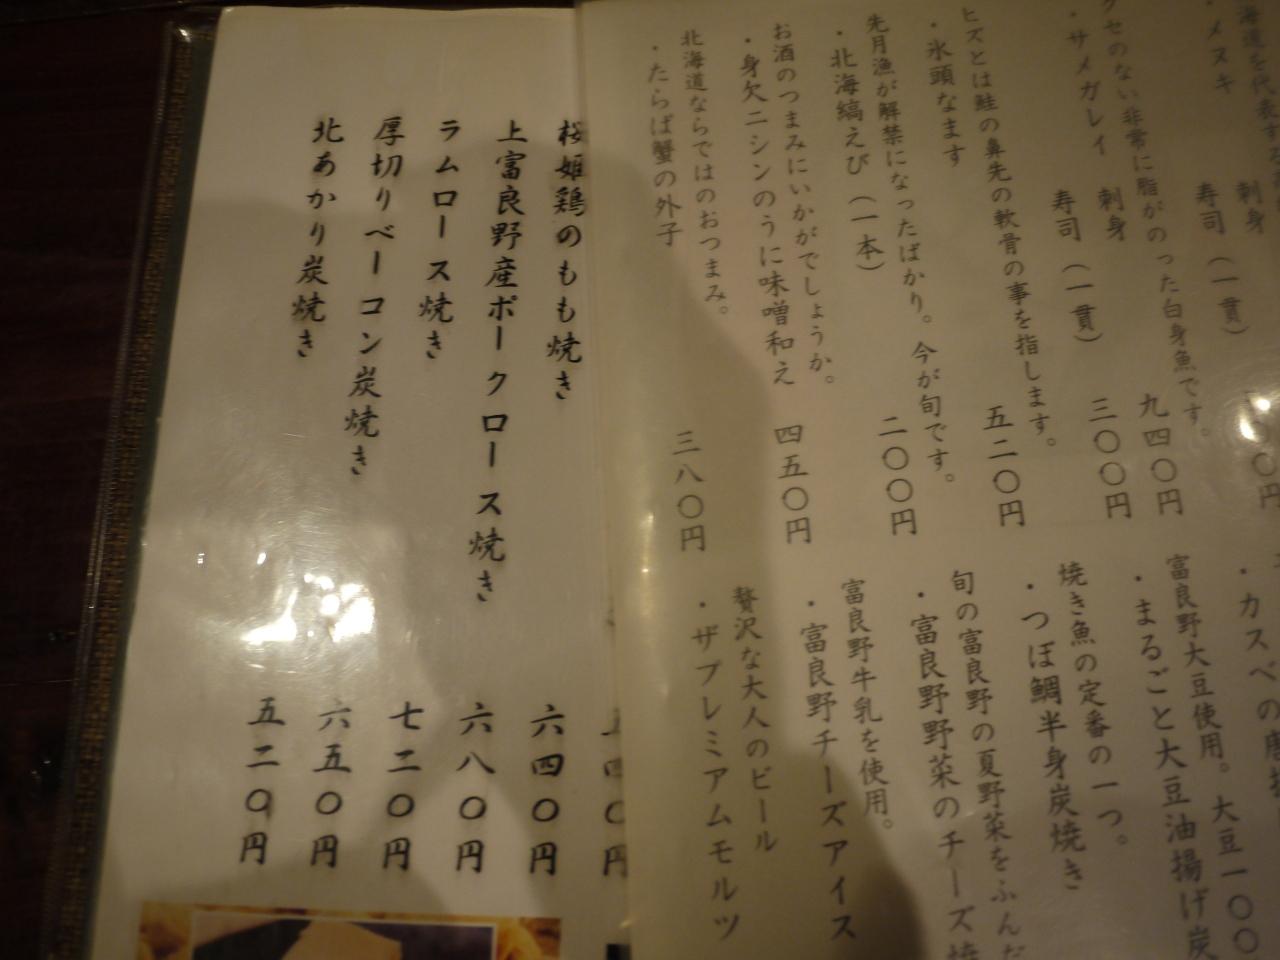 ・メヌキ
刺身
寿司（一貫）
クセのない非常に脂がのった白身魚です。
・サメガレイ
刺身 九四〇円
寿司（一貫） 三〇〇円
ヒズとは鮭の鼻先の軟骨の事を指します。
・氷頭なます 五二〇円
先月漁が解禁になったばかり。今が旬です。
・北海縞えび（一本） 二〇〇円
お酒のつまみにいかがでしょうか。
・身欠ニシンのうに味噌和え 四五〇円
北海道ならではのおつまみ。
・たらば蟹の外子 三八〇円
富良野大豆使用。大豆一〇〇
・まるごと大豆油揚げ炭
焼き魚の定番の一つ。
・つぼ鯛半身炭焼き
旬の富良野の夏野菜をふんだ
・富良野野菜のチーズ焼
富良野牛乳を使用。
・富良野チーズアイス
贅沢な大人のビール
・ザプレミアムモルツ
桜姫鶏のもも焼き 六四〇円
上富良野産ポークロース焼き 六八〇円
ラムロース焼き 七二〇円
厚切りベーコン炭焼き 六五〇円
北あかり炭焼き 五二〇円